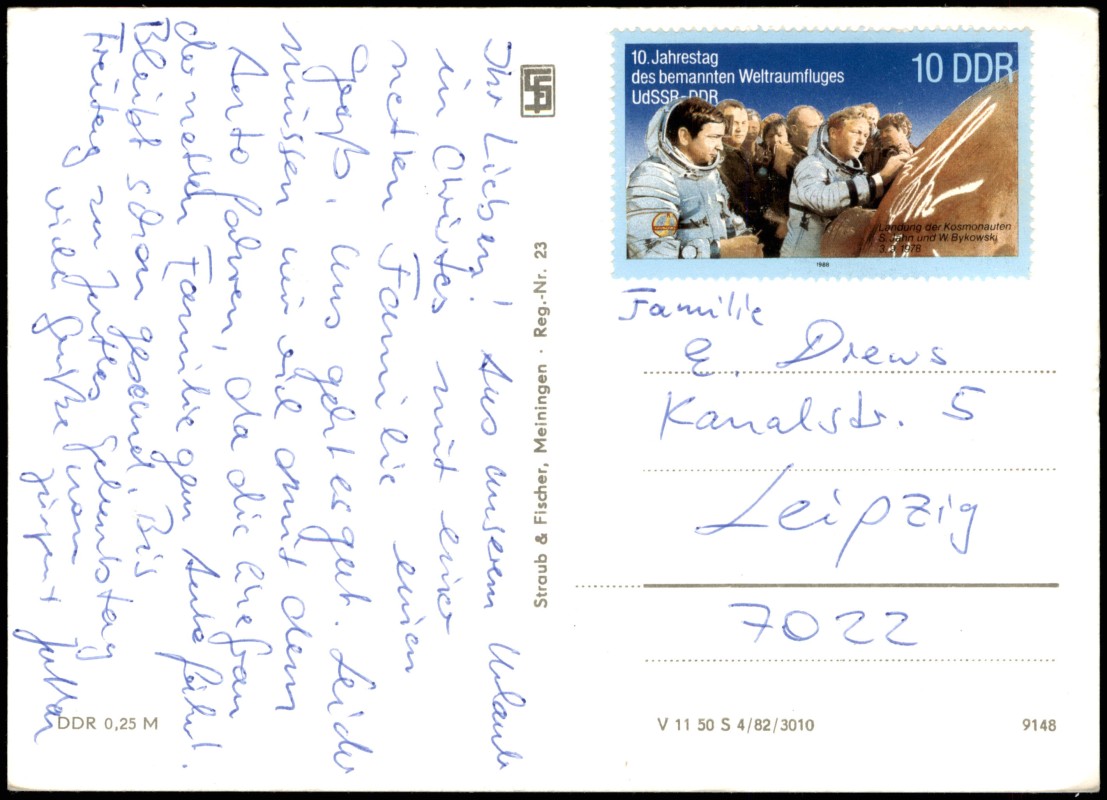 Ihr Lieben! Aus unserem Urlaub
in mit einer
netten Familie einen
Gruß. Uns geht es gut. Leider
müssen wir viel mit dem
Auto fahren, da die Ehefrau
der netten Familie gern Auto fährt.
Bleibt schön gesund. Bis
Freitag zu Geburtstag
viele Grüße von
Jürgen + Jutta
Straub & Fischer, Meiningen · Reg.-Nr. 23
10. Jahrestag
des bemannten Weltraumfluges
UdSSR-DDR
10 DDR
Landung der Kosmonauten
S. Jähn und W. Bykowski
3.9.1978
1988
Familie
E. Drews
Kanalstr. 5
Leipzig
7022
DDR 0,25 M
V 11 50 S 4/82/3010
9148